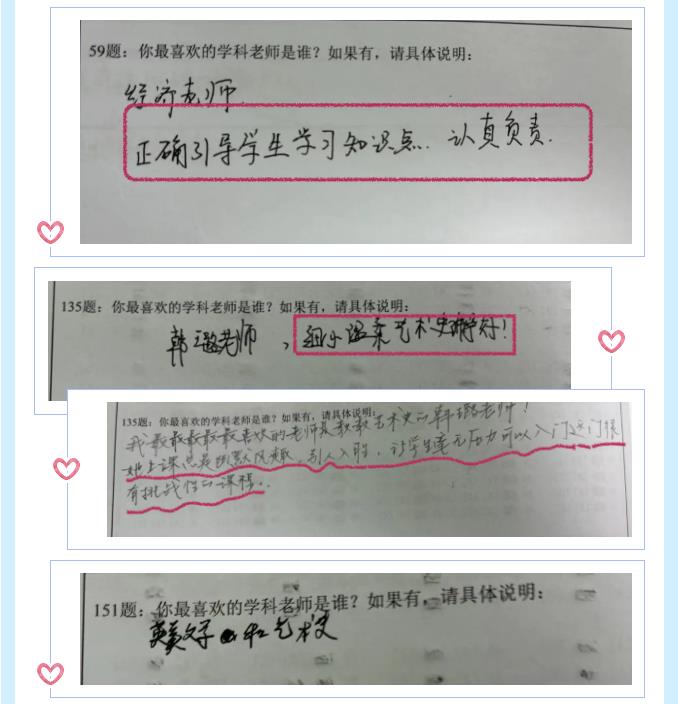 59题：你最喜欢的学科老师是谁？如果有，请具体说明：
经济老师
正确引导学生学习知识点．认真负责．
135题：你最喜欢的学科老师是谁？如果有，请具体说明：
韩璐老师，温柔艺术史讲得好！
135题：你最喜欢的学科老师是谁？如果有，请具体说明：
我最最最最最喜欢的老师是教教艺术史的韩璐老师！
她上课总是幽默风趣，引人入胜，让学生毫无压力可以入门这门很
有挑战性的课程．．
151题：你最喜欢的学科老师是谁？如果有，请具体说明：
英美文学 和艺术史